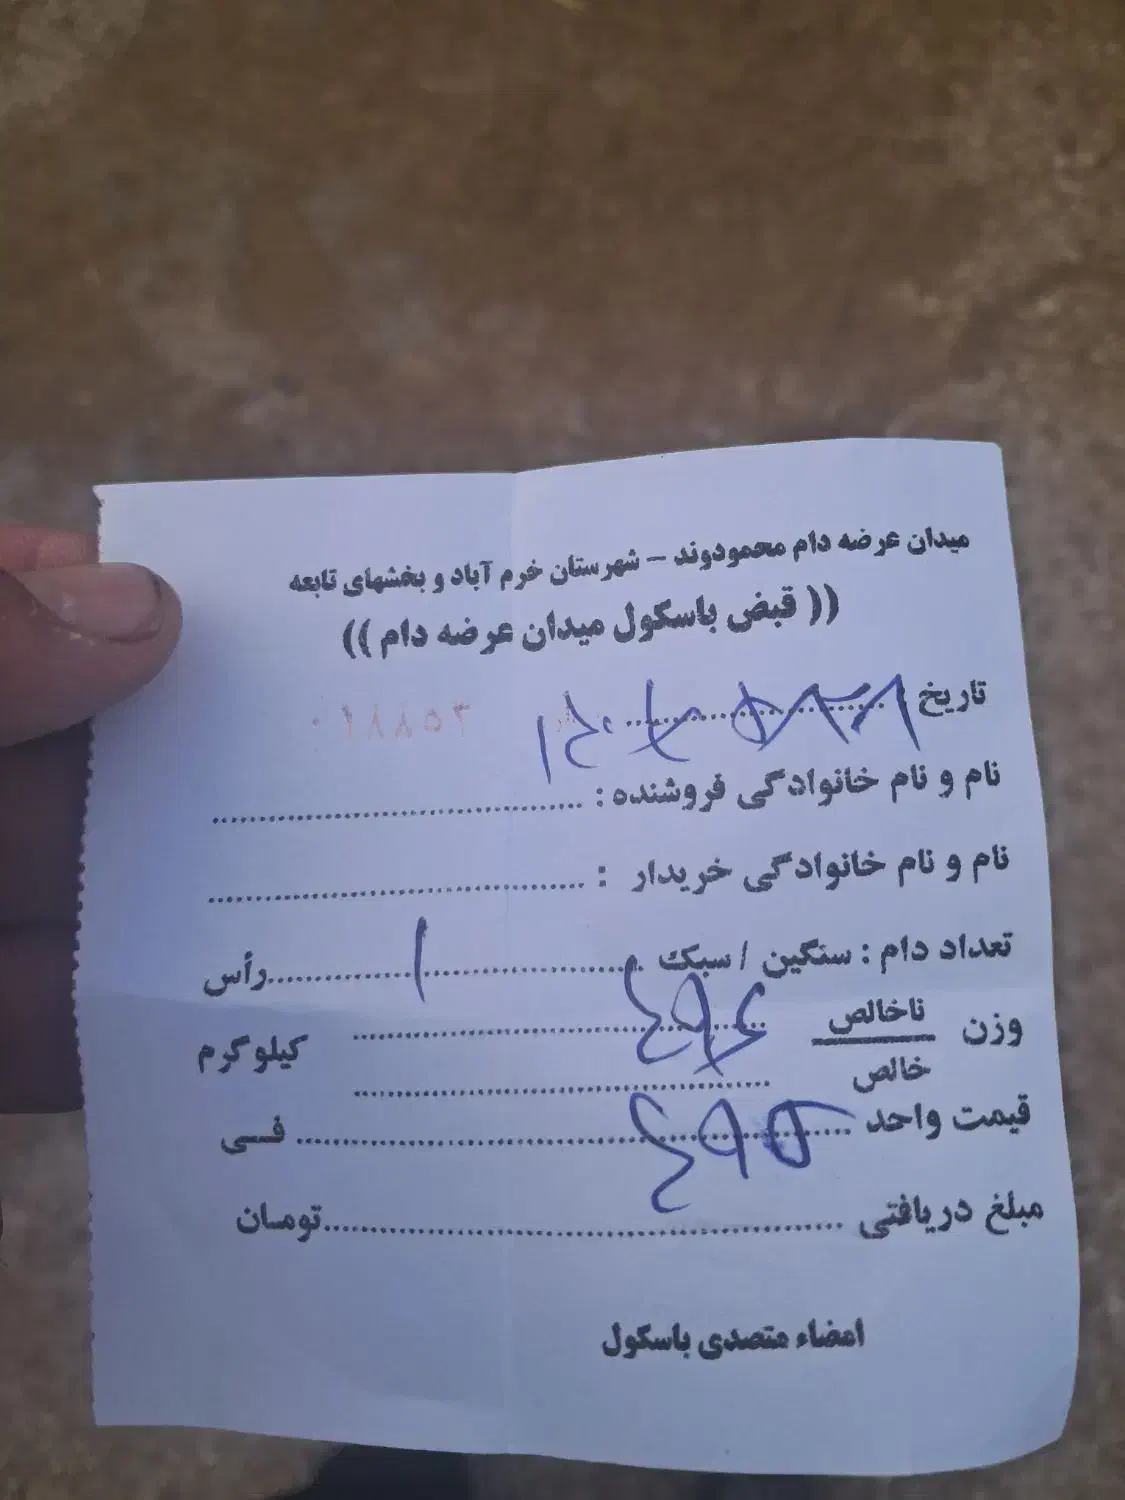 میدان عرضه دام محمودوند – شهرستان خرم آباد و بخشهای تابعه
(( قبض باسکول میدان عرضه دام ))
تاریخ
نام و نام خانوادگی فروشنده :
نام و نام خانوادگی خریدار :
تعداد دام : سنگین / سبک ۱ رأس
وزن ناخالص کیلوگرم
خالص
قیمت واحد فی
مبلغ دریافتی تومان
امضاء متصدی باسکول